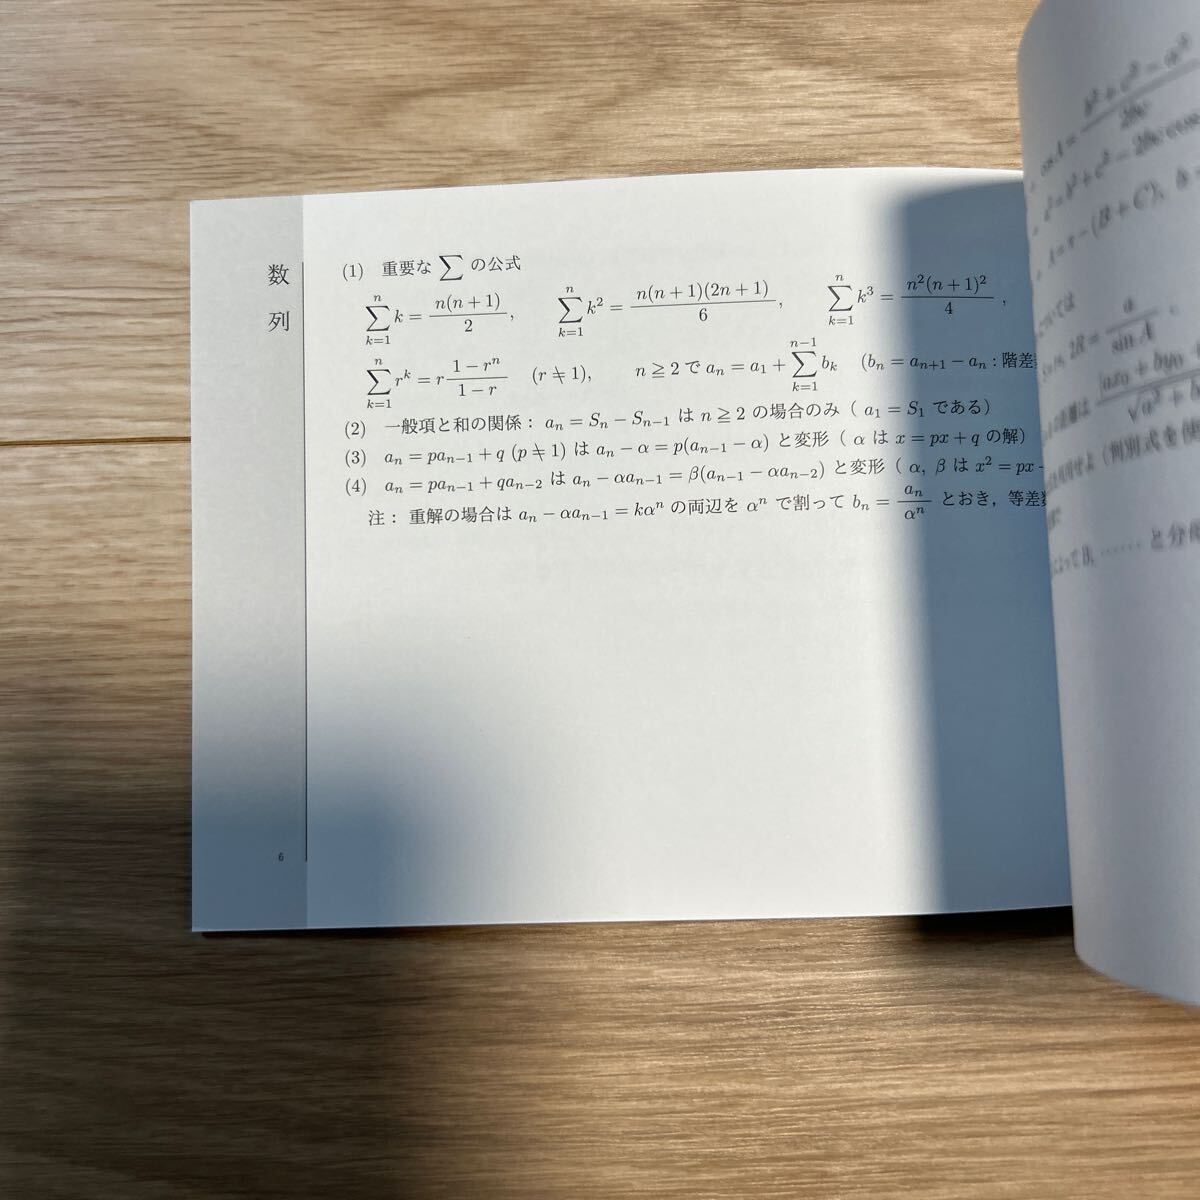 数列
(1) 重要な ∑ の公式
∑_{k=1}^{n} k = n(n+1)/2 , ∑_{k=1}^{n} k² = n(n+1)(2n+1)/6 , ∑_{k=1}^{n} k³ = n²(n+1)²/4 ,
∑_{k=1}^{n} r^k = r (1−r^n)/(1−r) (r ≠ 1), n ≧ 2 で a_n = a_1 + ∑_{k=1}^{n−1} b_k (b_n = a_{n+1} − a_n : 階差
(2) 一般項と和の関係： a_n = S_n − S_{n−1} は n ≧ 2 の場合のみ（ a_1 = S_1 である）
(3) a_n = pa_{n−1} + q (p ≠ 1) は a_n − α = p(a_{n−1} − α) と変形（ α は x = px + q の解）
(4) a_n = pa_{n−1} + qa_{n−2} は a_n − αa_{n−1} = β(a_{n−1} − αa_{n−2}) と変形（ α, β は x² = px
注： 重解の場合は a_n − αa_{n−1} = kα^n の両辺を α^n で割って b_n = a_n/α^n とおき，等差
6
A = π − (B + C),
については
2R = a/sin A ,
の距離は
（判別式を使
によって B, …… と分